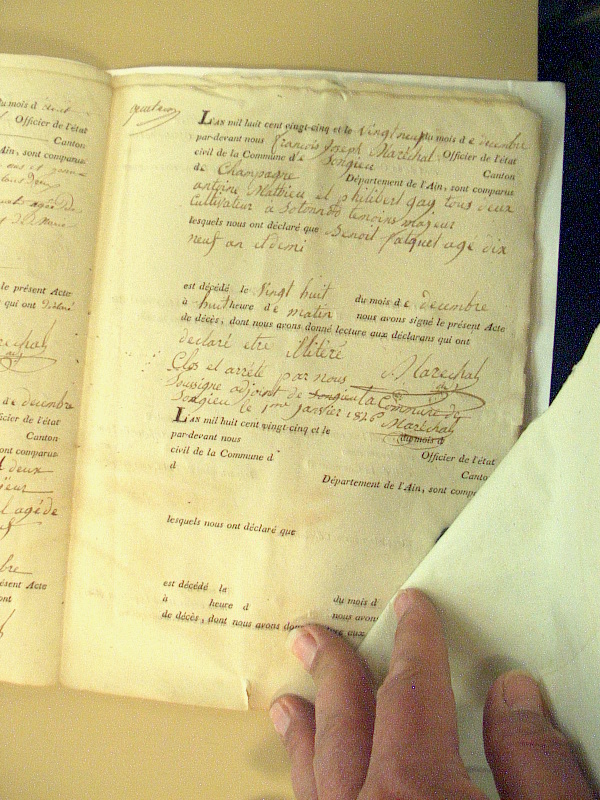 du mois d
Officier de l'état
Canton
Ain, sont comparus
le présent Acte
qui ont
de decembre
Officier de l'état
Canton
sont comparus
deux
agé de
présent Acte
ont
L'AN mil huit cent vingt-cinq et le vingt neuf du mois de decembre
par-devant nous françois Joseph Maréchal Officier de l'état
civil de la Commune de Songieu Canton
de Champagne Département de l'Ain, sont comparus
antoine Mathieu et philibert gay tous deux
Cultivateur à Sotonnod temoins majeur
lesquels nous ont déclaré que Benoit age dix
neuf an et demi
est décédé le Vingt huit du mois de decembre
à huit heure de matin nous avons signé le présent Acte
de décès, dont nous avons donné lecture aux déclarans qui ont
declaré etre illitéré
Clos et arrêté par nous Marechal
Soussigné adjoint de Songieu la Commune de
Songieu le 1er Janvier 1826 Maréchal
L'AN mil huit cent vingt-cinq et le du mois d
par-devant nous Officier de l'état
civil de la Commune d Canton
d Département de l'Ain, sont comp
lesquels nous ont déclaré que
est décédé le du mois d
à heure d nous avons
de décès, dont nous avons donné lecture aux